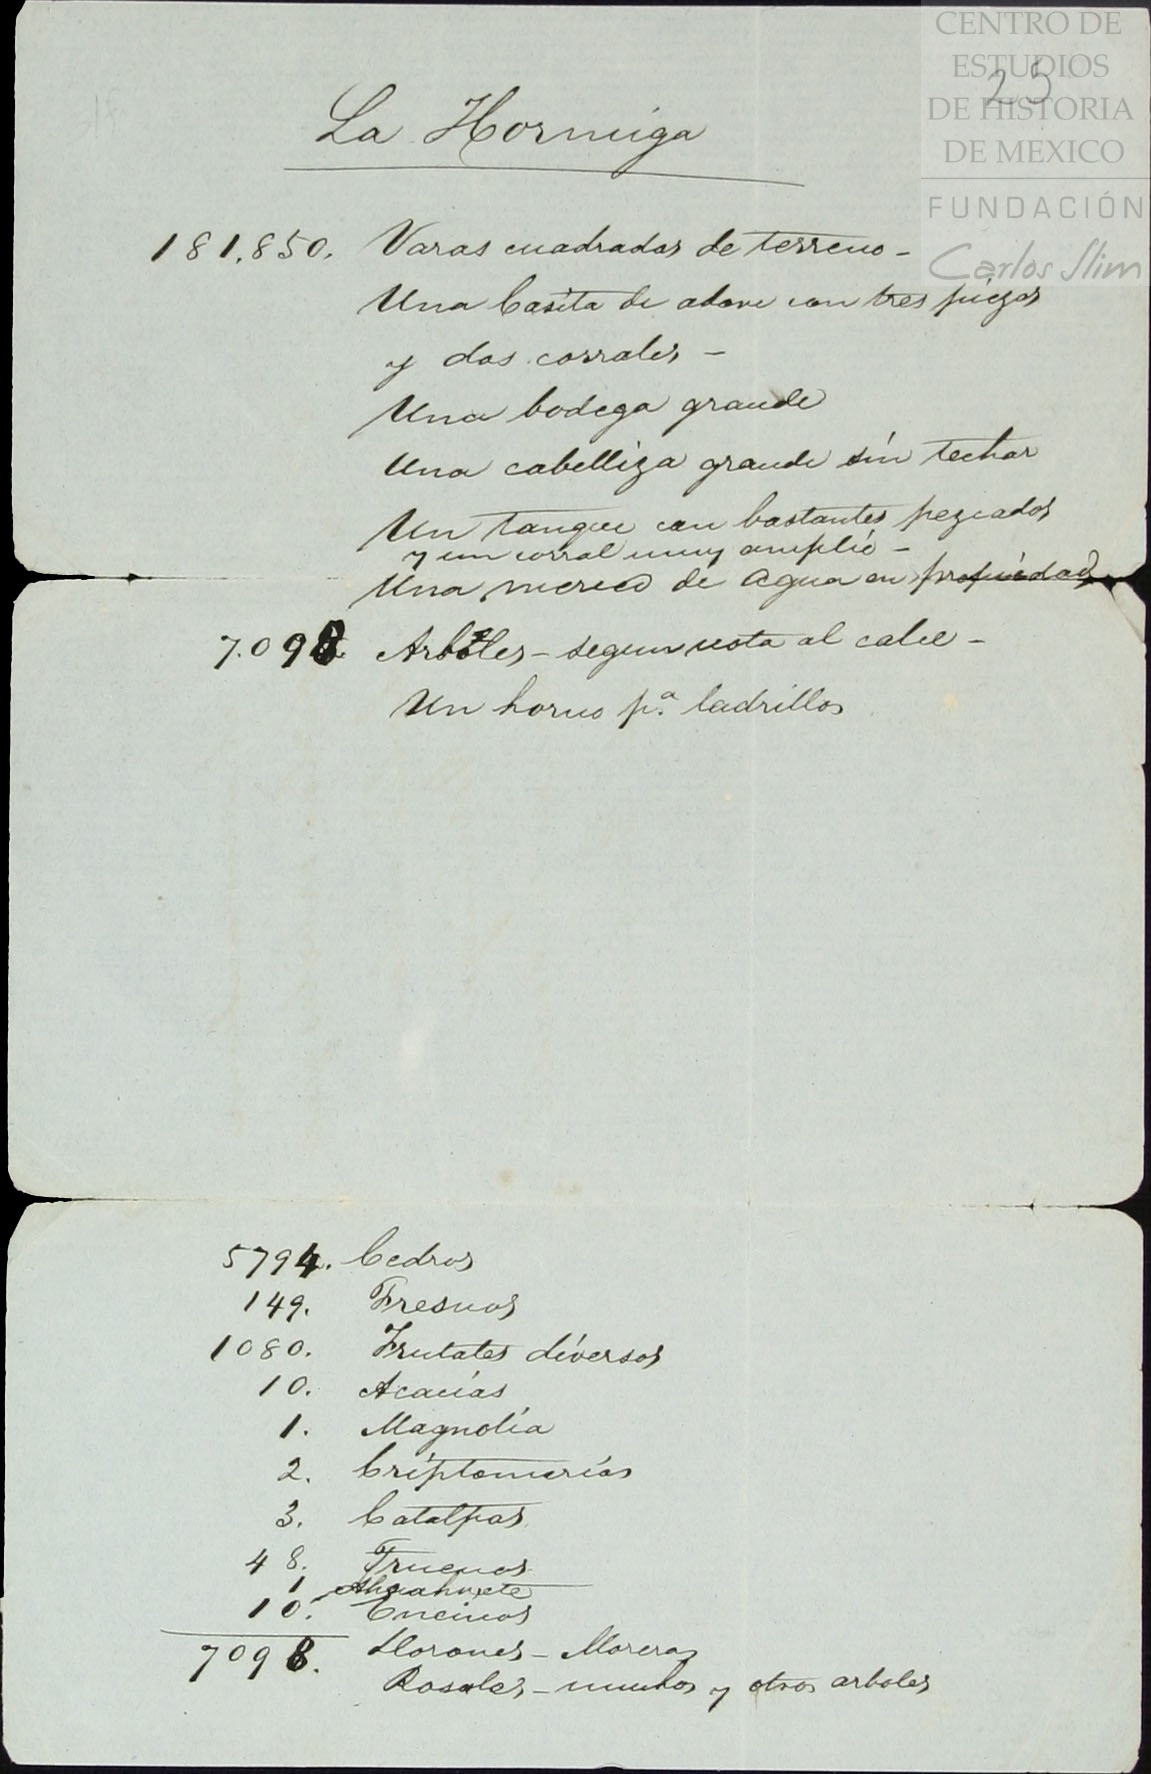 CENTRO DE
ESTUDIOS
DE HISTORIA
DE MEXICO
FUNDACIÓN
Carlos Slim
25
La Hormiga
181,850. Varas cuadradas de terreno -
Una Casita de adove con tres piezas
y dos corrales -
Una bodega grande
Una caballiza grande sin techar
Un tanque con bastantes pezcados
y un corral muy amplio -
Una merced de agua en propiedad
7.098 Arboles - segun nota al calce -
Un horno pª ladrillos
5794. Cedros
149. Fresnos
1080. Frutales diversos
10. Acacias
1. Magnolia
2. Criptomerias
3. Catalpas
48. Truenos
1 Ahuahuete
10. Encinos
7098. Llorones - Moreras
Rosales - muchos y otros arboles